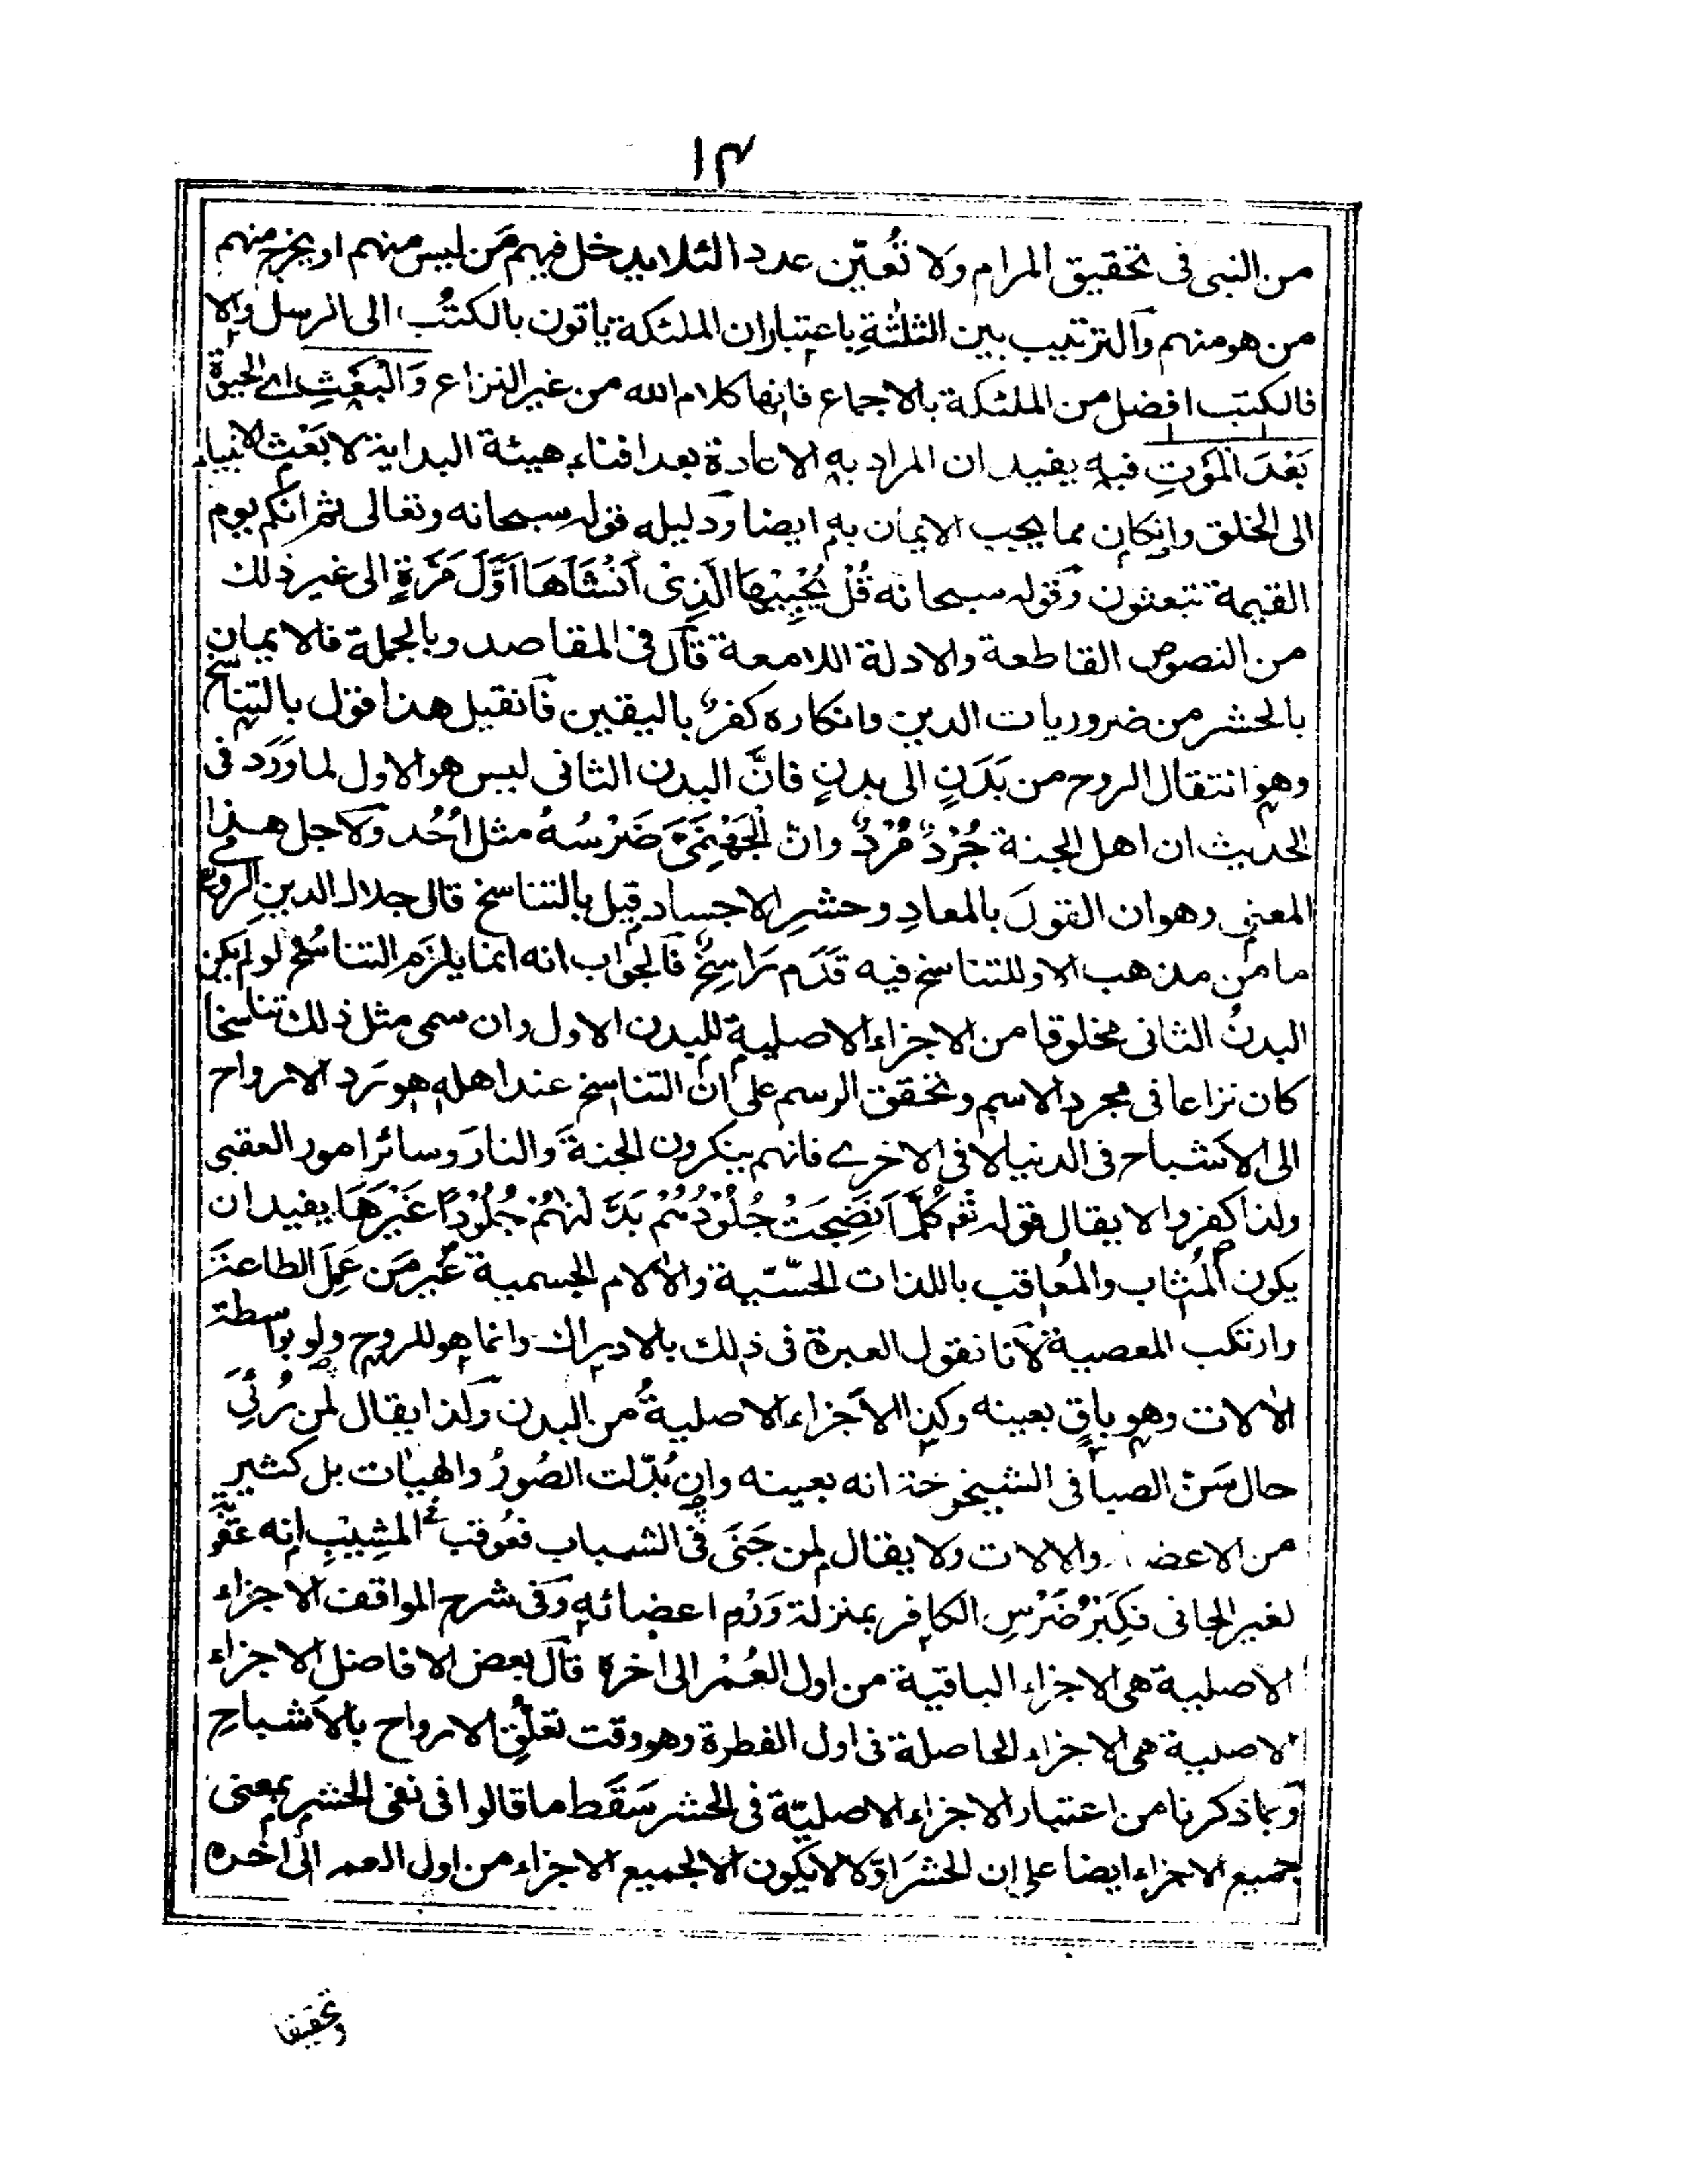 ١٣
من النبى فى تحقيق المرام ولا تُعيّن عدد الئلا يدخل فيهم مَن ليس منهم او يخرج منهم
من هو منهم والترتيب بين الثلثة باعتبار ان الملئكة ياتون بالكتُب الى الرسل والا
فالكتب افضل من الملئكة بالاجماع فانها كلام الله من غير النزاع وَالْبَعْثِ اى الحيوة
بَعْدَ الْمَوْتِ فيه يفيد ان المراد به الاعادة بعد افناء هيئة البداية لا بَعْثِ الانبياء
الى الخلق وان كان مما يجب الايمان به ايضا ودليله قوله سبحانه وتعالى ثم انكم يوم
القيمة تبعثون وقوله سبحانه قُلْ يُحْيِيْهَا الَّذِىْ اَنْشَاَهَا اَوَّلَ مَرَّةٍ الى غير ذلك
من النصوص القاطعة والادلة اللامعة قال فى المقاصد وبالجملة فالايمان
بالحشر من ضروريات الدين وانكاره كفرٌ باليقين فان قيل هذا قول بالتناسخ
وهو انتقال الروح من بَدَنٍ الى بدنٍ فانَّ البدن الثانى ليس هو الاول لما وَرَدَ فى
الحديث ان اهل الجنة جُرْدٌ مُرْدٌ وانّ الْجَهَنَّمِىَّ ضَرْسُهُ مثل اُحُد ولاجل هذا
المعنى وهو ان القولَ بالمعادِ وحشرِ الاجساد قيل بالتناسخ قال جلال الدين الرومى
ما من مذهب الا وللتناسخ فيه قَدَم رَاسِخٌ فالجواب انه انما يلزَم التناسُخ لو لم يكن
البدنُ الثانى مخلوقا من الاجزاء الاصلية للبدن الاول وان سمى مثل ذلك تناسخا
كان نزاعا فى مجرد الاسم وتحقق الرسم على انّ التناسخ عند اهله هو رَد الارواح
الى الاشباح فى الدنيا لا فى الاخرے فانهم ينكرون الجنةَ والنارَ وسائر امور العقبى
ولذا كفروا لا يقال قوله تعم كُلَّمَا نَضِجَتْ جُلُوْدُهُمْ بَدَّلْنٰهُمْ جُلُوْدًا غَيْرَهَا يفيد ان
يكون المُثاب والمُعاقب باللذات الحسّيّة والآلام الجسمية غَيرَ مَن عَمِلَ الطاعةَ
وارتكب المعصية لانا نقول العبرة فى ذلك بالادراك وانما هو للروح ولو بواسطة
الالات وهو باقٍ بعينه وكذا الاَجزاء الاصليةُ من البدن ولذا يقال لمن رُئِىَ
حال سَنّ الصبا فى الشيخوخة انه بعينه وان بُدّلت الصُورُ والهيأت بل كثير
من الاعضا والالات ولا يقال لمن جَنَى فى الشباب فعُوقب فى المشِيْبِ انه عقُوبة
لغير الجانى فكِبَرُ ضَرْسِ الكافر بمنزلة وَرَم اعضائه وفى شرح المواقف الاجزاء
الاصلية هى الاجزاء الباقية من اول العُمْر الى اخره قال بعض الافاضل الاجزاء
الاصلية هى الاجزاء الحاصلة فى اول الفطرة وهو وقت تعلُّقِ الارواح بالاَشباحِ
وبما ذكرنا من اعتبار الاجزاء الاصليّة فى الحشر سَقَط ما قالوا فى نفى الحشر بمعنى
جميع الاجزاء ايضا على ان الحشر اوّلا لا يكون الا لجميع الاجزاء من اول العمر الى اخره
وتحقيقا